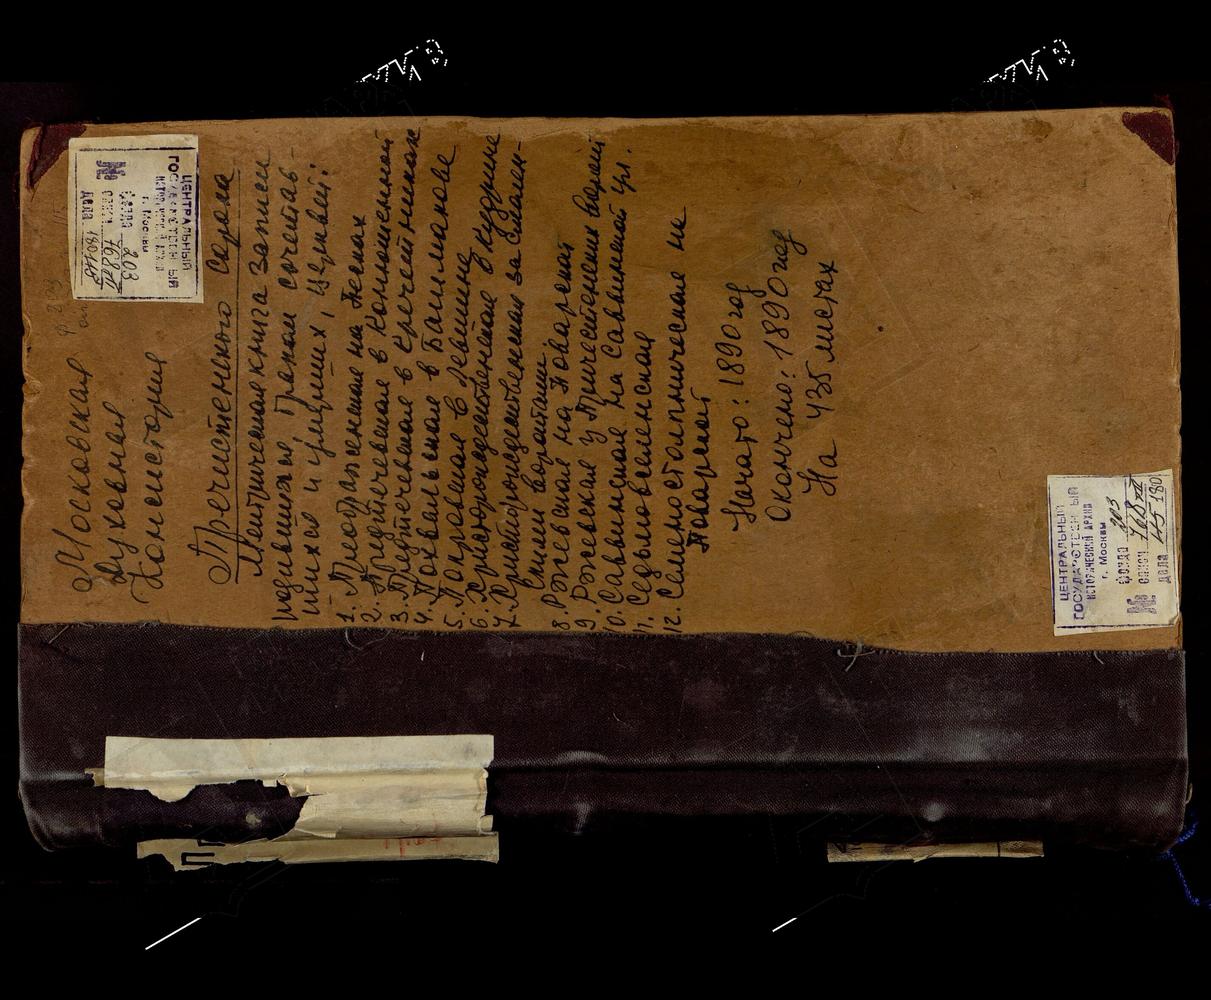 Московская
Духовная
Консистория
Пречистенского сорока
Метрическая книга записи
родившихся, браком сочетав-
шихся и умерших, церквей:
1. Преображенская на Песках
2. Предтеченская в Конюшенной
3. Предтеченская в Кречетниках
4. Похвальская в Башмакове
5. Покровская в Левшине
6. Христорождественская в Кудрине
7. Христорождественская за Смолен-
скими воротами
8. Ржевская на Поварской
9. Ржевская у Пречистенских ворот
10. Саввинская на Саввинской ул.
11. Седьмовселенская
12. Симеоностолпническая на
Поварской
Начато: 1890 год
Окончено: 1890 год
На 435 листах
ЦЕНТРАЛЬНЫЙ
ГОСУДАРСТВЕННЫЙ
ИСТОРИЧЕСКИЙ АРХИВ
г. Москвы
фонда 203
№ описи
дела 180
ЦЕНТРАЛЬНЫЙ
ГОСУДАРСТВЕННЫЙ
ИСТОРИЧЕСКИЙ АРХИВ
г. Москвы
фонда 203
№ описи
дела